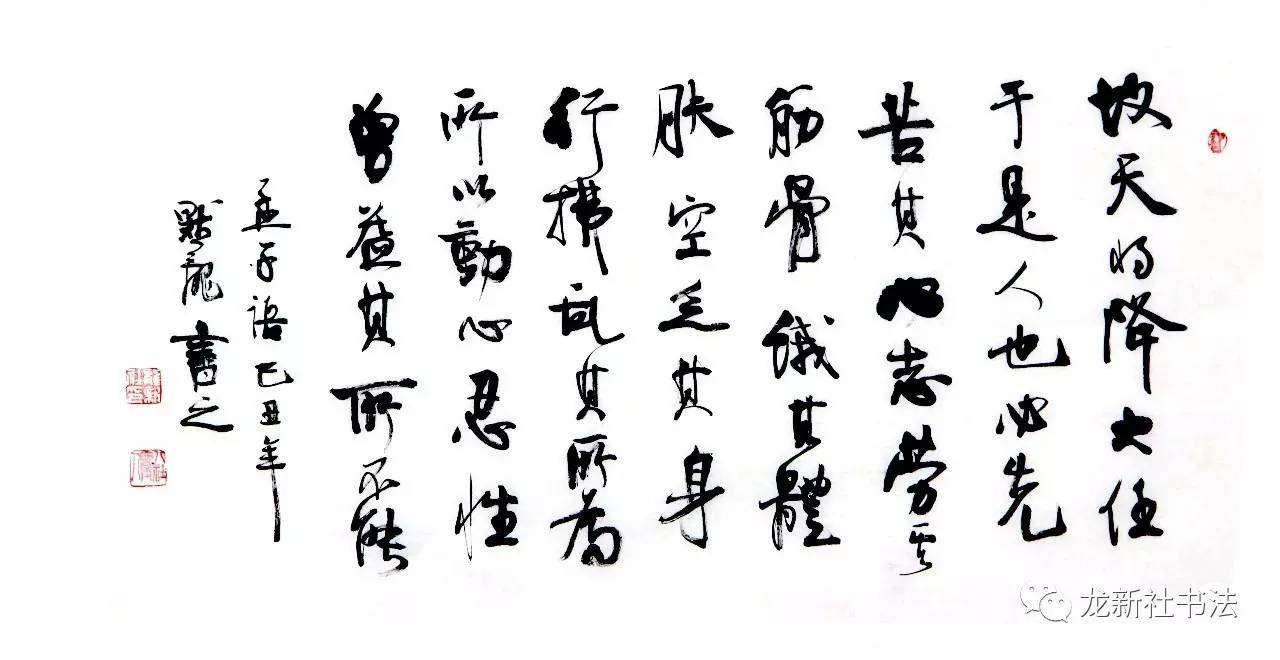 故天将降大任
于是人也必先
苦其心志劳其
筋骨饿其體
肤空乏其身
行拂乱其所為
所以動心忍性
曾益其所不能
孟子语己丑年
龍書之
龙新社书法